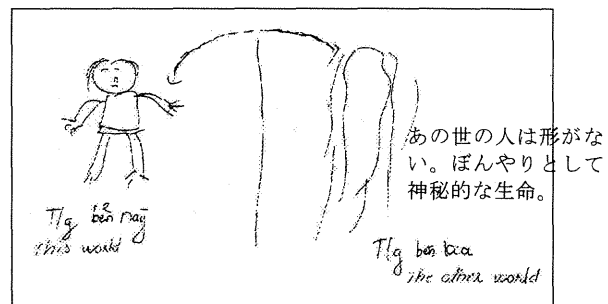 あの世の人は形がな
い。ぼんやりとして
神秘的な生命。
bên này
this world
bên kia
the other world